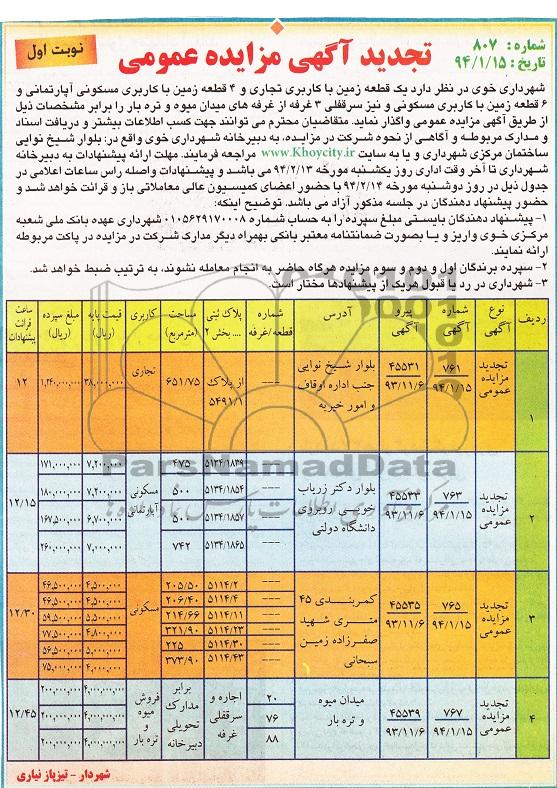 شماره: ۸۰۷
تاریخ: ۹۴/۱/۱۵
تجدید آگهی مزایده عمومی
نوبت اول
شهرداری خوی در نظر دارد یک قطعه زمین با کاربری تجاری و ۴ قطعه زمین با کاربری مسکونی آپارتمانی و
۶ قطعه زمین با کاربری مسکونی و نیز سرقفلی ۳ غرفه از غرفه های میدان میوه و تره بار را برابر مشخصات ذیل
از طریق آگهی مزایده عمومی واگذار نماید. متقاضیان محترم می توانند جهت کسب اطلاعات بیشتر و دریافت اسناد
و مدارک مربوطه و آگاهی از نحوه شرکت در مزایده، به دبیرخانه شهرداری خوی واقع در: بلوار شیخ نوایی
ساختمان مرکزی شهرداری و یا به سایت www.Khoycity.ir مراجعه فرمایند. مهلت ارائه پیشنهادات به دبیرخانه
شهرداری تا آخر وقت اداری روز یکشنبه مورخه ۹۴/۲/۱۳ می باشد و پیشنهادات واصله راس ساعات اعلامی در
جدول ذیل در روز دوشنبه مورخه ۹۴/۲/۱۴ با حضور اعضای کمیسیون عالی معاملاتی باز و قرائت خواهد شد و
حضور پیشنهاد دهندگان در جلسه مذکور آزاد می باشد. توضیح اینکه:
۱- پیشنهاد دهندگان بایستی مبلغ سپرده را به حساب شماره ۰۱۰۵۶۲۹۱۷۰۰۰۸ شهرداری عهده بانک ملی شعبه
مرکزی خوی واریز و یا بصورت ضمانتنامه معتبر بانکی بهمراه دیگر مدارک شرکت در مزایده در پاکت مربوطه
ارائه نمایند.
۲- سپرده برندگان اول و دوم و سوم مزایده هرگاه حاضر به انجام معامله نشوند، به ترتیب ضبط خواهد شد.
۳- شهرداری در رد یا قبول هریک از پیشنهادها مختار است.
ردیف نوع آگهی شماره آگهی پیرو آگهی آدرس شماره قطعه/غرفه پلاک ثبتی .... بخش ۲ مساحت (مترمربع) کاربری قیمت پایه (ریال) مبلغ سپرده (ریال) ساعت قرائت پیشنهادات
۱ تجدید مزایده عمومی ۷۶۱ ۹۴/۱/۱۵ ۴۵۵۳۱ ۹۳/۱۱/۶ بلوار شیخ نوایی جنب اداره اوقاف و امور خیریه --- از پلاک ۵۴۹۱/۱ ۶۵۱/۷۵ تجاری ۳۸,۰۰۰,۰۰۰ ۱,۲۴۰,۰۰۰,۰۰۰ ۱۲
۲ تجدید مزایده عمومی ۷۶۳ ۹۴/۱/۱۵ ۴۵۵۳۳ ۹۳/۱۱/۶ بلوار دکتر زریاب خویی روبروی دانشگاه دولتی مسکونی آپارتمانی ۱۲/۱۵
--- ۵۱۳۴/۱۸۳۹ ۴۷۵ ۷,۲۰۰,۰۰۰ ۱۷۱,۰۰۰,۰۰۰
--- ۵۱۳۴/۱۸۵۴ ۵۰۰ ۷,۲۰۰,۰۰۰ ۱۸۰,۰۰۰,۰۰۰
--- ۵۱۳۴/۱۸۵۷ ۵۰۰ ۶,۷۰۰,۰۰۰ ۱۶۷,۵۰۰,۰۰۰
--- ۵۱۳۴/۱۸۶۵ ۷۴۲ ۷,۰۰۰,۰۰۰ ۲۶۰,۰۰۰,۰۰۰
۳ تجدید مزایده عمومی ۷۶۵ ۹۴/۱/۱۵ ۴۵۵۳۵ ۹۳/۱۱/۶ کمربندی ۴۵ متری شهید صفرزاده زمین سبحانی مسکونی ۱۲/۳۰
--- ۵۱۱۴/۲ ۲۰۵/۵۰ ۴,۵۰۰,۰۰۰ ۴۶,۵۰۰,۰۰۰
--- ۵۱۱۴/۴ ۲۰۶/۴۰ ۴,۵۰۰,۰۰۰ ۴۶,۵۰۰,۰۰۰
--- ۵۱۱۴/۱۱ ۲۱۴/۶۶ ۵,۵۰۰,۰۰۰ ۵۹,۵۰۰,۰۰۰
--- ۵۱۱۴/۲۳ ۳۲۱/۹۰ ۴,۸۰۰,۰۰۰ ۷۷,۵۰۰,۰۰۰
--- ۵۱۱۴/۳۰ ۲۲۵ ۵,۰۰۰,۰۰۰ ۵۶,۵۰۰,۰۰۰
--- ۵۱۱۴/۴۳ ۳۷۳/۹۰ ۴,۰۰۰,۰۰۰ ۷۵,۰۰۰,۰۰۰
۴ تجدید مزایده عمومی ۷۶۷ ۹۴/۱/۱۵ ۴۵۵۳۹ ۹۳/۱۱/۶ میدان میوه و تره بار اجاره و سرقفلی غرفه برابر مدارک تحویلی دبیرخانه فروش میوه و تره بار ۱۲/۴۵
۲۰ ۴,۰۰۰,۰۰۰ ۲۰۰,۰۰۰,۰۰۰
۷۶ ۴,۰۰۰,۰۰۰ ۲۰۰,۰۰۰,۰۰۰
۸۸ ۴,۰۰۰,۰۰۰ ۲۰۰,۰۰۰,۰۰۰
شهردار - تیزپاز نیاری
ParsNamadData